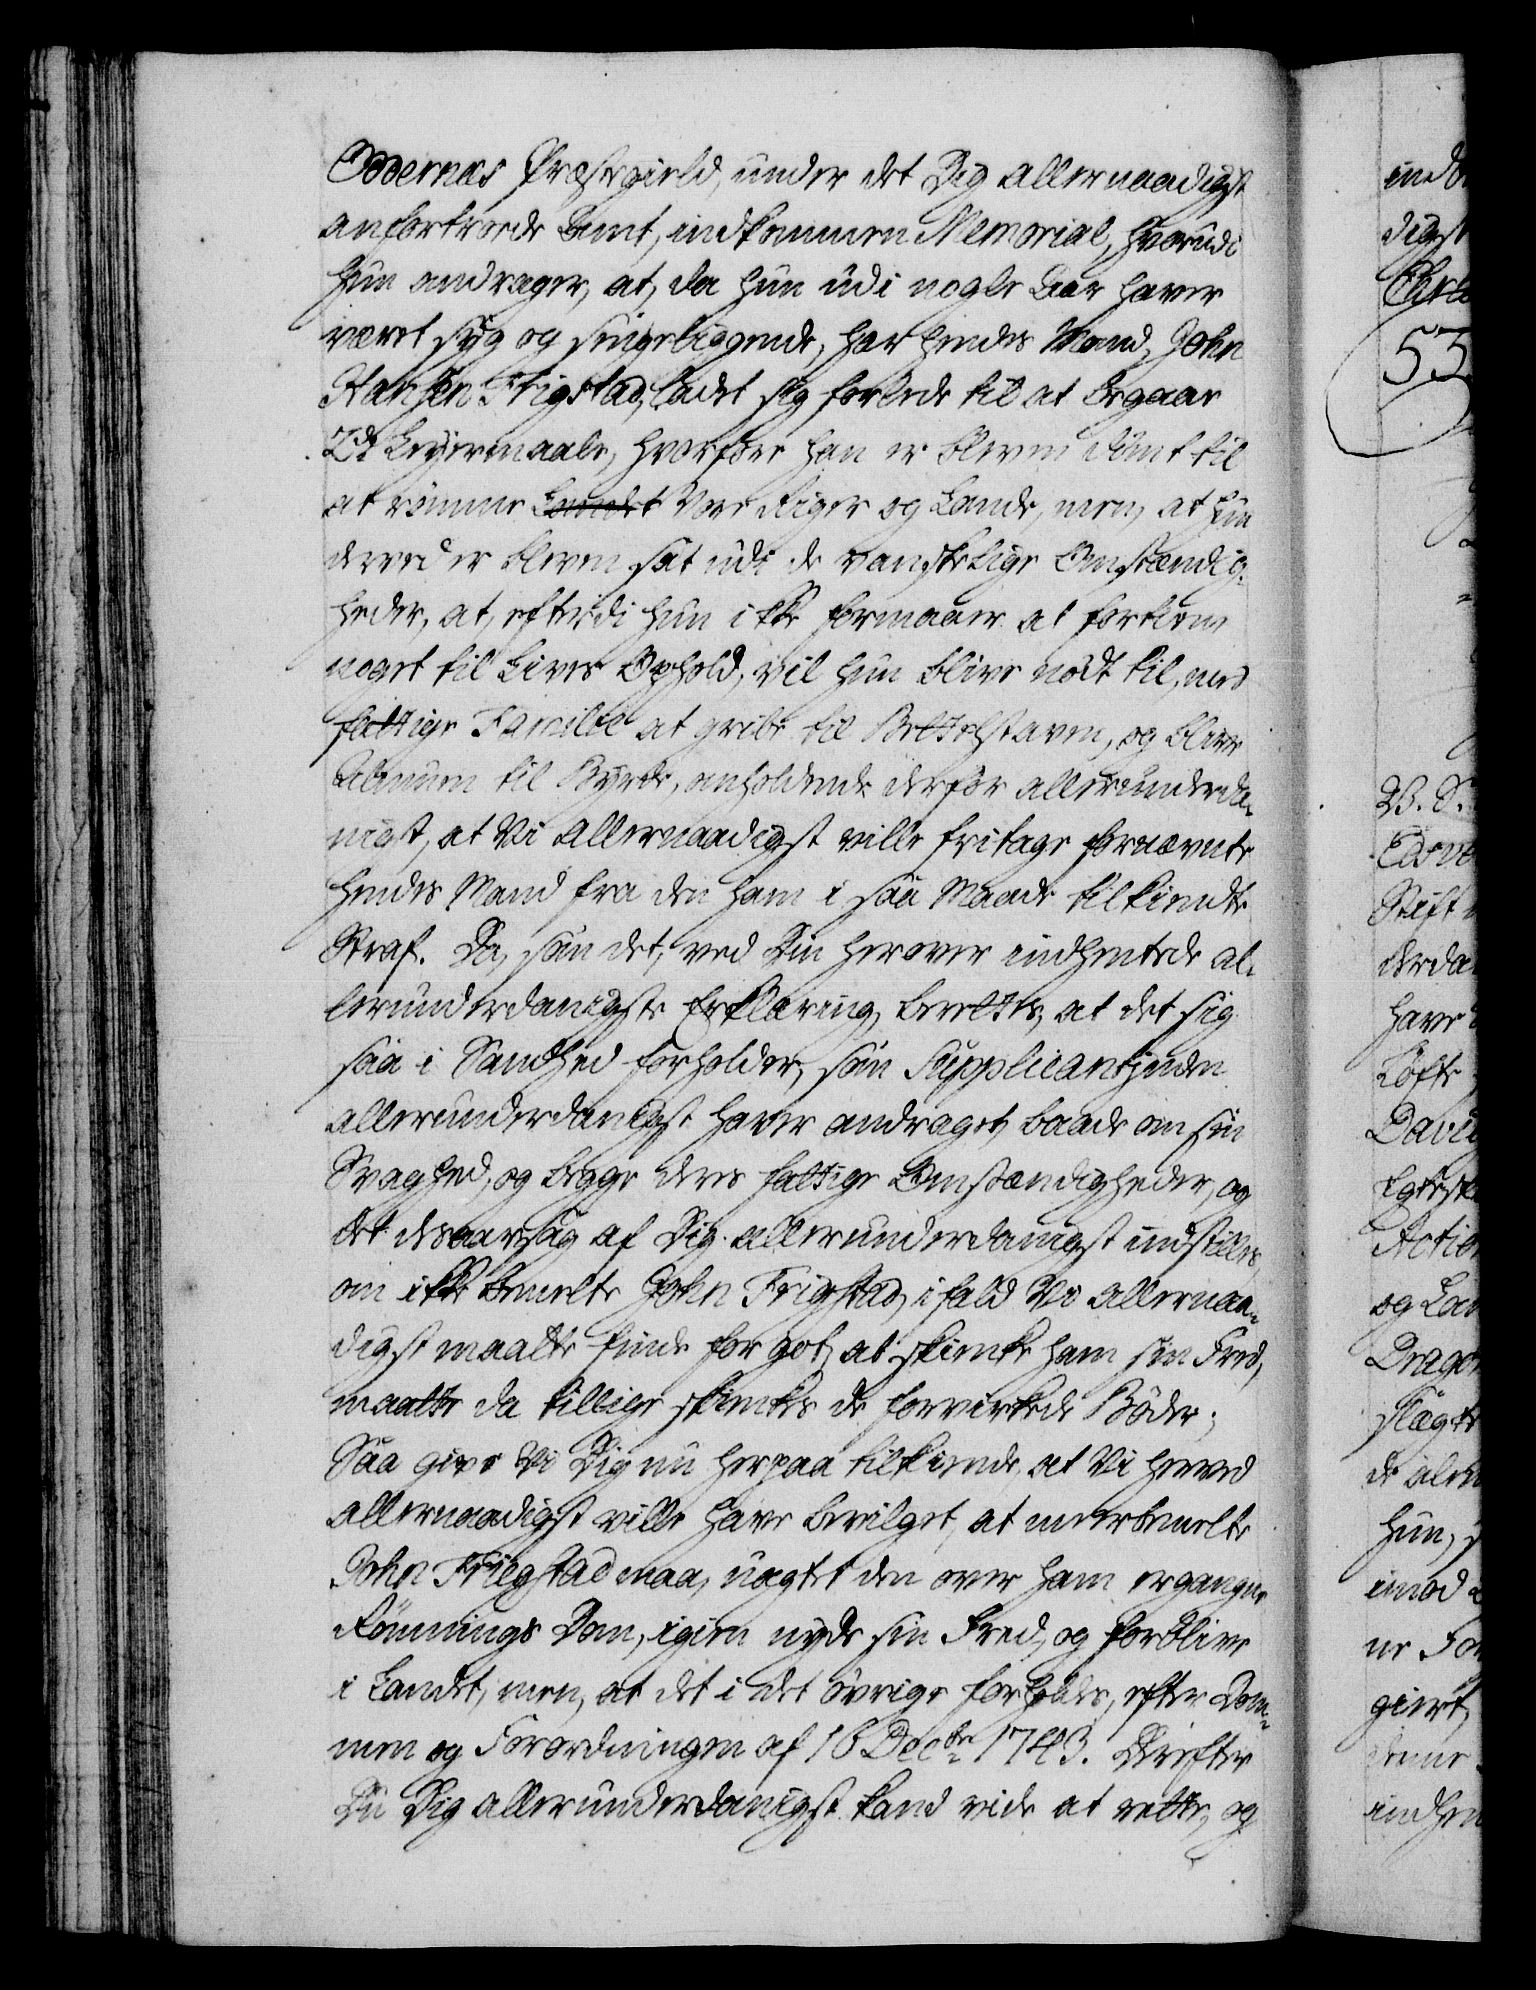 Oddernæs Præstegield, under det Dig allernaadigst
anfortroede Amt, indkommen Memorial, hvorudi
hun andrager, at, da hun udi nogle Aar haver
været syg og sengeliggende, har hendes Mand, John
Hansen Frigstad, ladet sig forlede til at begaae
2de Leyermaale, hvorfore han er bleven dømt til
at rømme Landet Vore Riger og Lande, men, at hun
derved er bleven sat udi de vanskelige Omstændig-
heder, at, efterdi hun ikke formaaer at fortiene
noget til Livets Ophold, vil hun blive nødt til, med
fattige Familie at gribe til Bettelstaven, og blive
Almuen til Byrde, anholdende derfor allerunderda-
nigst, at Vi allernaadigst ville fritage fornævnte
hendes Mand fra den ham i saa Maade tilkiendte
Straf. Da, som det, ved Din herover indhentede al-
lerunderdanigste Erklæring, berettes, at det sig
saa i Sandhed forholder, som Supplicantinden
allerunderdanigst haver andraget, baade om sin
Svaghed, og begge deres fattige Omstændigheder, og
det desaarsag af Dig allerunderdanigst indstilles,
om ikke bemelte John Frigstad, ifald Vi allernaa-
digst maatte finde for got, at skienke ham sin Fred,
maatte da tillige skienkes de forvirkede Bøder;
Saa give Vi Dig nu herpaa tilkiende, at Vi herved
allernaadigst ville have bevilget, at meerbemelte
John Friegstad maa, uagtet den over ham ergangne
Rømnings Dom, igien nyde sin Fred, og forblive
i Landet, men, at det i det øvrige forholdes, efter Dom-
men og Forordningen af 16 Decbr 1743. Derefter
Du Dig allerunderdanigst kand vide at rette, og
53